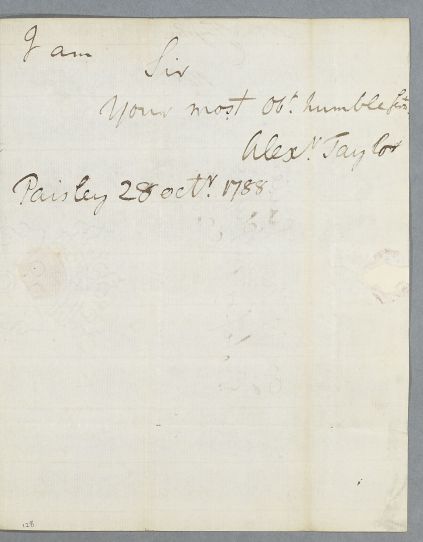 I am
Sir
Your most Obt. humble Sert.
Alexr. Taylor
Paisley 28 octr. 1788
128